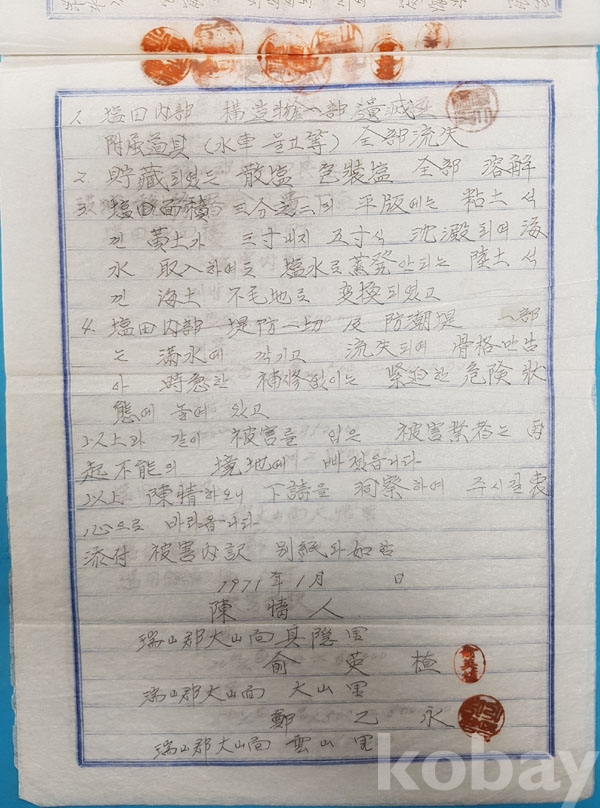 1. 塩田內部 構造物 一部 潰滅
附属道具 (水車 물고等) 全部流失
2. 貯藏되었는 散塩 包裝塩 全部 溶解
3. 塩田面積 三分之二의 平版에는 粘土 석
낀 黃土가 三寸내지 五寸식 沈澱되여 海
水 取入하여도 塩水로 蒸發안되는 陸土 석
낀 海土 不毛地로 変換되였고
4. 塩田內部 堤防一切 及 防潮堤 一部
는 満水에 깍기고 流失되여 骨格만 남
아 時急한 補修없이는 緊迫한 危険 狀
態에 놓여 있고
以上과 같이 被害를 입은 被害業者는 再
起不能의 境地에 빠졌읍니다
以上 陳情하오니 下諒을 洞察하여 주시길 衷
心으로 바라옵니다
添付 被害內訳 別紙와 如함
1971年 1月 日
陳情人
瑞山郡大山面 里
俞英植
瑞山郡大山面 大山里
鄭乙永
瑞山郡大山面 雲山里
kobay